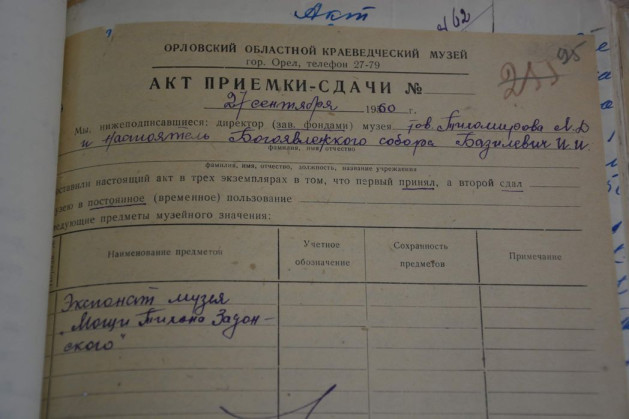 Акт
462
95
ОРЛОВСКИЙ ОБЛАСТНОЙ КРАЕВЕДЧЕСКИЙ МУЗЕЙ
гор. Орел, телефон 27-79
АКТ ПРИЕМКИ-СДАЧИ №
27 сентября 1960 г.
Мы, нижеподписавшиеся: директор (зав. фондами) музея тов. Тихомирова М.Д
и настоятель Богоявленского собора Базилевич И.И.
фамилия, имя, отчество
фамилия, имя, отчество, должность, название учреждения
оставили настоящий акт в трех экземплярах в том, что первый принял, а второй сдал
музею в постоянное (временное) пользование
едующие предметы музейного значения:
Наименование предметов
Учетное обозначение
Сохранность предметов
Примечание
Экспонат музея
„Мощи Тихона Задон-
ского"